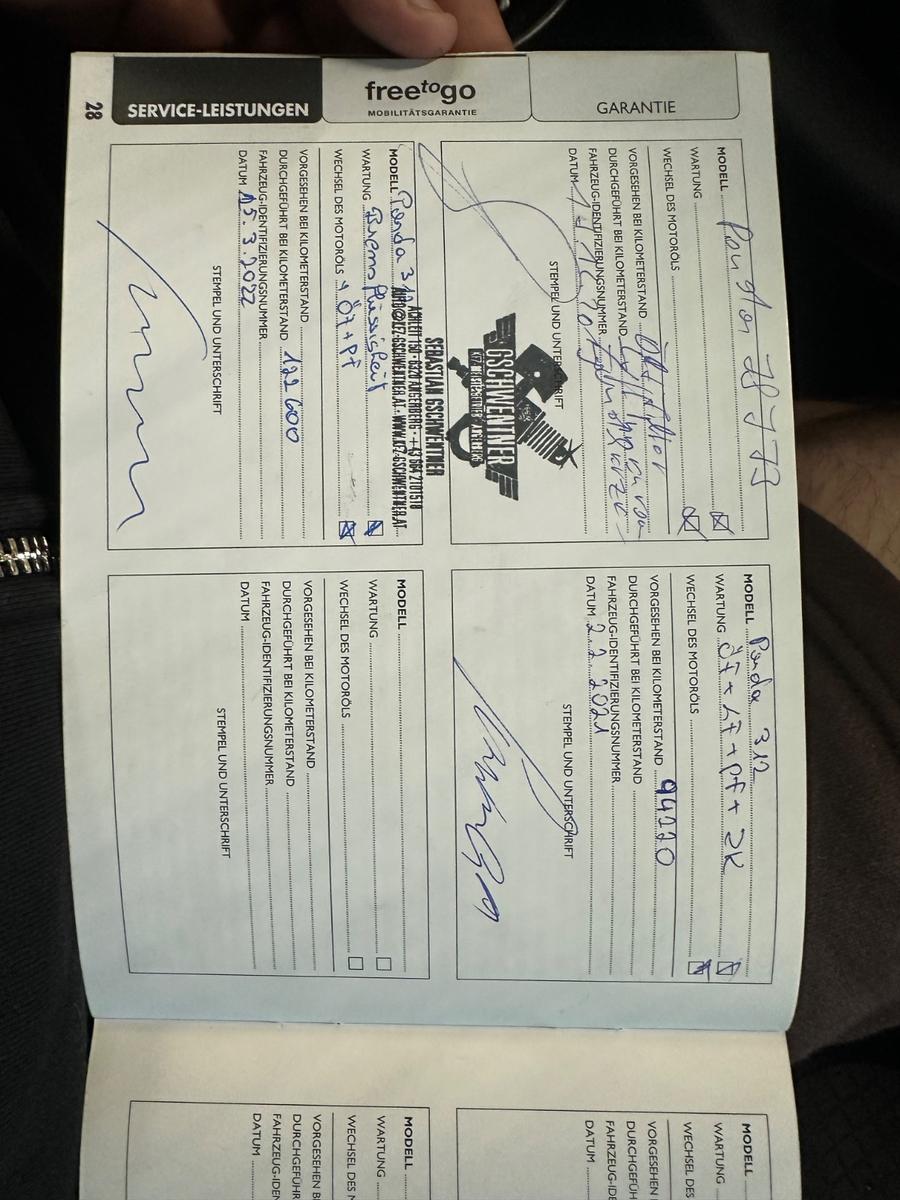 28
SERVICE-LEISTUNGEN
freetogo
MOBILITÄTSGARANTIE
GARANTIE
MODELL
WARTUNG
WECHSEL DES MOTORÖLS
VORGESEHEN BEI KILOMETERSTAND
DURCHGEFÜHRT BEI KILOMETERSTAND
FAHRZEUG-IDENTIFIZIERUNGSNUMMER
DATUM
STEMPEL UND UNTERSCHRIFT
GSCHWENTNER
SEBASTIAN GSCHWENTNER
ACHLEIT 150 · 6320 ANGERBERG
WWW.KFZ-GSCHWENTNER.AT
MODELL Panda 312
WARTUNG ÖF + LF + PF + ZK
WECHSEL DES MOTORÖLS
VORGESEHEN BEI KILOMETERSTAND 94270
DURCHGEFÜHRT BEI KILOMETERSTAND
FAHRZEUG-IDENTIFIZIERUNGSNUMMER
DATUM 2.2.2021
STEMPEL UND UNTERSCHRIFT
MODELL Panda 312
WARTUNG Bremsflüssigkeit
WECHSEL DES MOTORÖLS ÖF + PF
VORGESEHEN BEI KILOMETERSTAND
DURCHGEFÜHRT BEI KILOMETERSTAND 122 600
FAHRZEUG-IDENTIFIZIERUNGSNUMMER
DATUM 15.3.2022
STEMPEL UND UNTERSCHRIFT
MODELL
WARTUNG
WECHSEL DES MOTORÖLS
VORGESEHEN BEI KILOMETERSTAND
DURCHGEFÜHRT BEI KILOMETERSTAND
FAHRZEUG-IDENTIFIZIERUNGSNUMMER
DATUM
STEMPEL UND UNTERSCHRIFT
MODELL
WARTUNG
WECHSEL DES
VORGESEHEN BEI
DATUM
MODELL
WARTUNG
WECHSEL DES
VORGESEHEN
DATUM